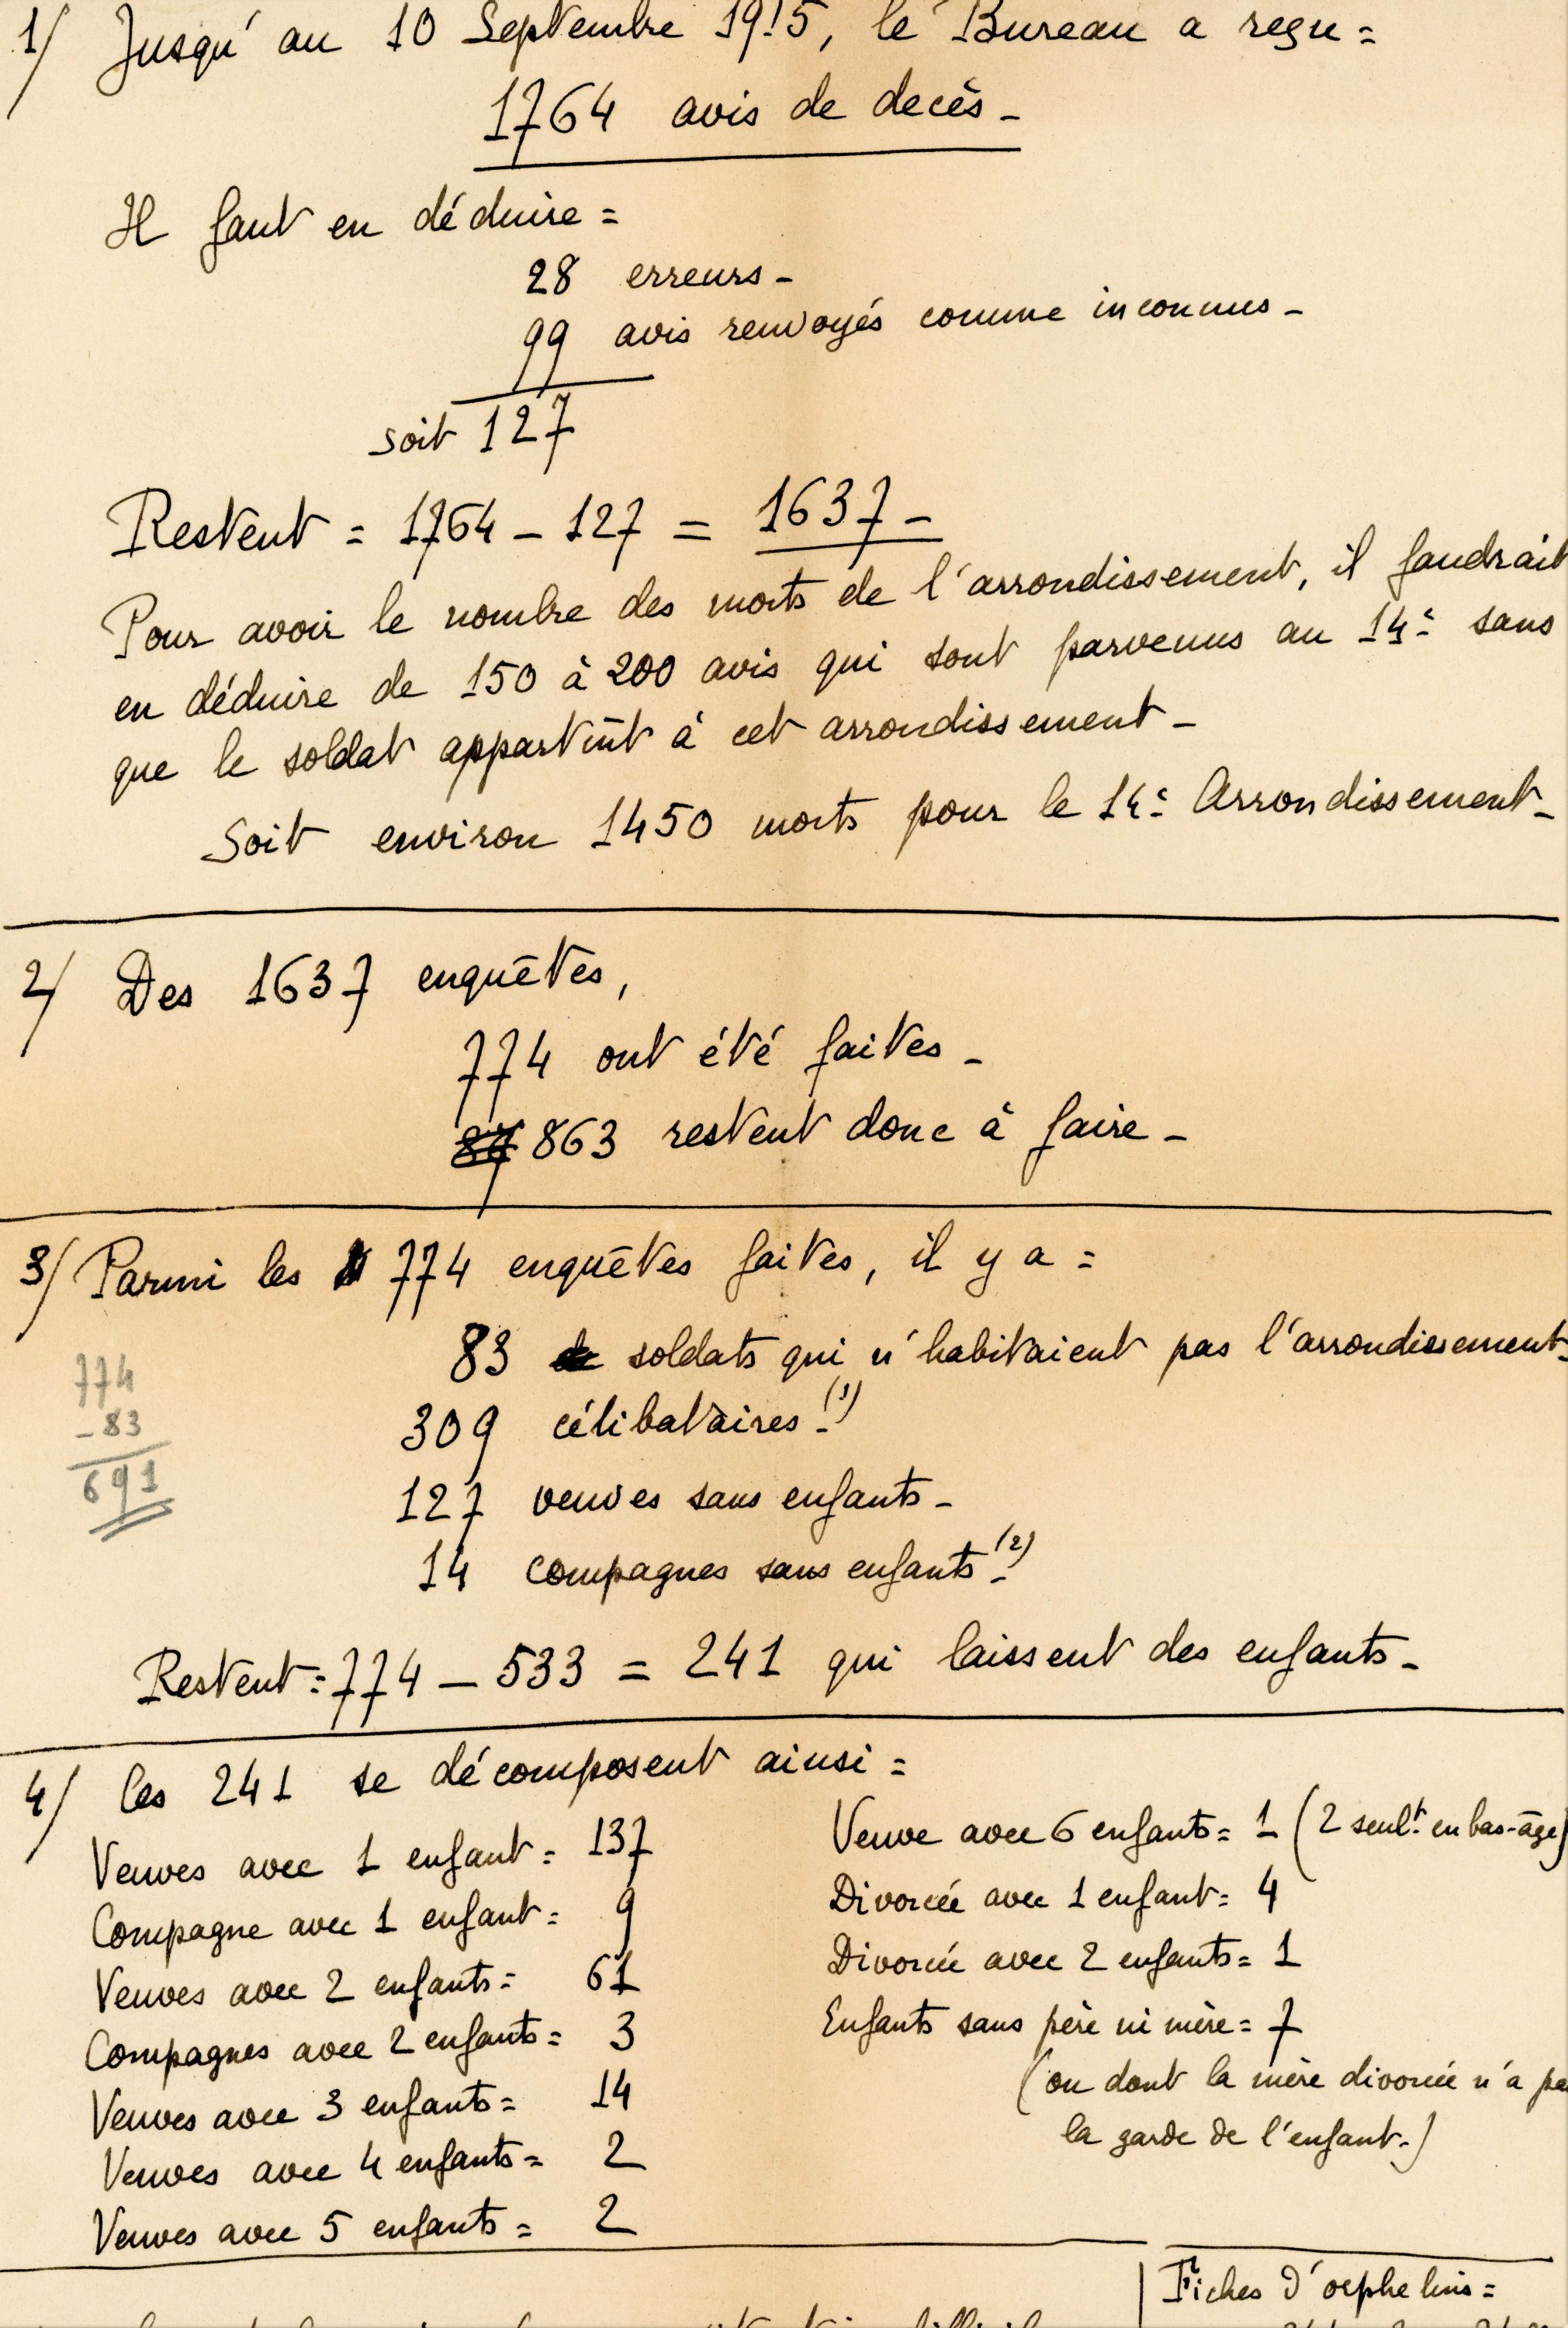 1/ Jusqu'au 10 Septembre 1915, le Bureau a reçu =
1764 avis de decès -
Il faut en déduire =
28 erreurs -
99 avis renvoyés comme inconnus -
soit 127
Restent = 1764 - 127 = 1637 -
Pour avoir le nombre des morts de l'arrondissement, il faudrait
en déduire de 150 à 200 avis qui sont parvenus au 14e sans
que le soldat appartînt à cet arrondissement -
Soit environ 1450 morts pour le 14e Arrondissement -
2/ Des 1637 enquêtes,
774 ont été faites -
87 863 restent donc à faire -
3/ Parmi les 774 enquêtes faites, il y a =
83 soldats qui n'habitaient pas l'arrondissement -
309 célibataires - (1)
127 veuves sans enfants -
14 compagnes sans enfants - (2)
774
- 83
691
Restent = 774 - 533 = 241 qui laissent des enfants -
4/ Ces 241 se décomposent ainsi =
Veuves avec 1 enfant = 137
Compagne avec 1 enfant = 9
Veuves avec 2 enfants = 61
Compagnes avec 2 enfants = 3
Veuves avec 3 enfants = 14
Veuves avec 4 enfants = 2
Veuves avec 5 enfants = 2
Veuve avec 6 enfants = 1 (2 seult en bas-âge)
Divorcée avec 1 enfant = 4
Divorcée avec 2 enfants = 1
Enfants sans père ni mère = 7
(ou dont la mère divorcée n'a pa
la garde de l'enfant.)
Fiches d'orphelins =